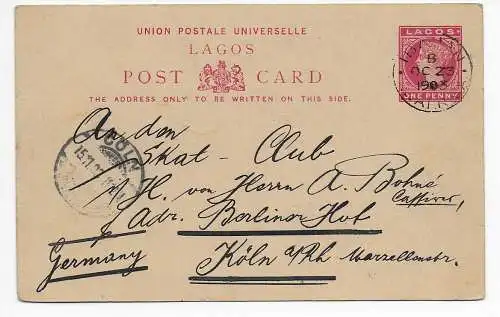 UNION POSTALE UNIVERSELLE
LAGOS
POST CARD
THE ADDRESS ONLY TO BE WRITTEN ON THIS SIDE.
LAGOS
ONE PENNY
B
OC 23
1903
CÖLN
An den
Skat - Club
z/H. von Herrn A. Bohné
Adr. Berliner Hof
Köln a/Rh Marzellenstr.
Germany